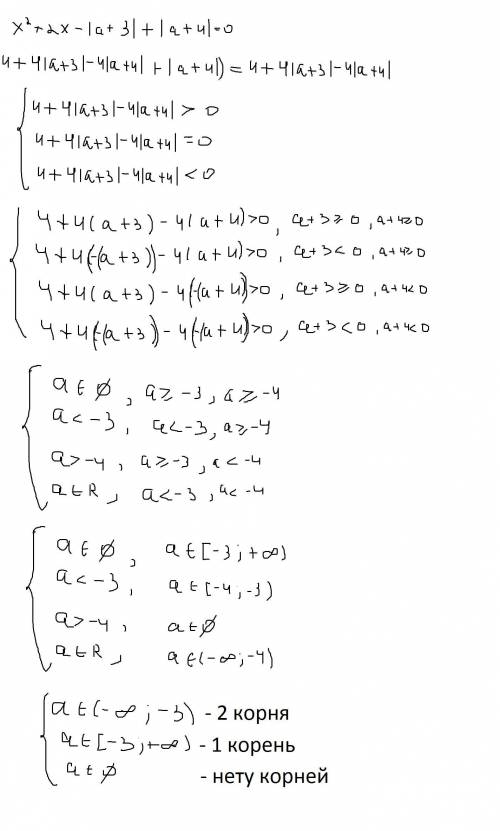 x²+2x-|a+3|+|a+4|=0
4+4|a+3|-4|a+4| +|a+4|)=4+4|a+3|-4|a+4|
4+4|a+3|-4|a+4|>0
4+4|a+3|-4|a+4|=0
4+4|a+3|-4|a+4|<0
4+4(a+3)-4(a+4)>0, a+3≥0, a+4≥0
4+4(-(a+3))-4(a+4)>0, a+3<0, a+4≥0
4+4(a+3)-4(-(a+4))>0, a+3≥0, a+4<0
4+4(-(a+3))-4(-(a+4))>0, a+3<0, a+4<0
a∈∅, a≥-3, a≥-4
a<-3, a<-3, a≥-4
a>-4, a≥-3, a<-4
a∈R, a<-3, a<-4
a∈∅, a∈[-3;+∞)
a<-3, a∈[-4,-3)
a>-4, a∈∅
a∈R, a∈(-∞;-4)
a∈(-∞;-3) - 2 корня
a∈[-3;+∞) - 1 корень
a∈∅ - нету корней